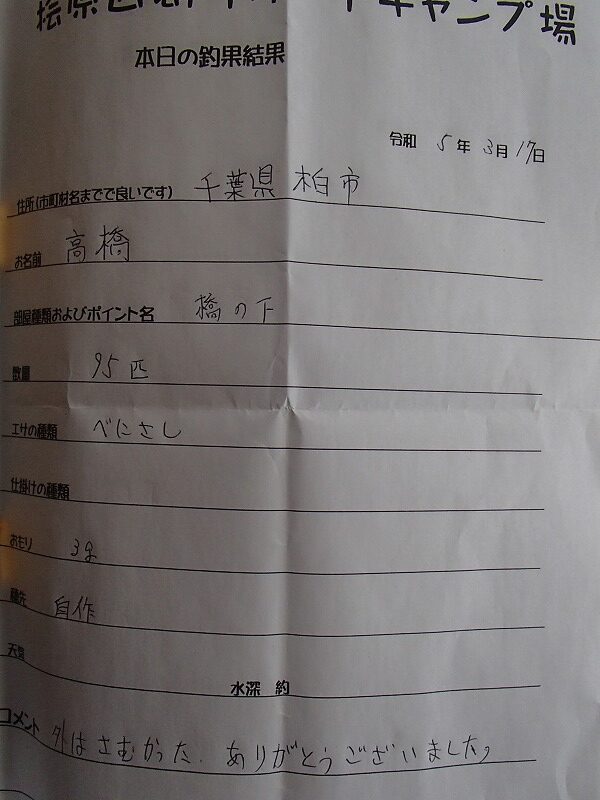 キャンプ場
本日の釣果結果
令和 5年 3月17日
住所(市町村名までで良いです) 千葉県柏市
お名前 高橋
部屋種類およびポイント名 橋の下
数量 95匹
エサの種類 べにさし
仕掛けの種類
おもり 3g
穂先 自作
天気
水深 約
コメント 外はさむかった、ありがとうございました。